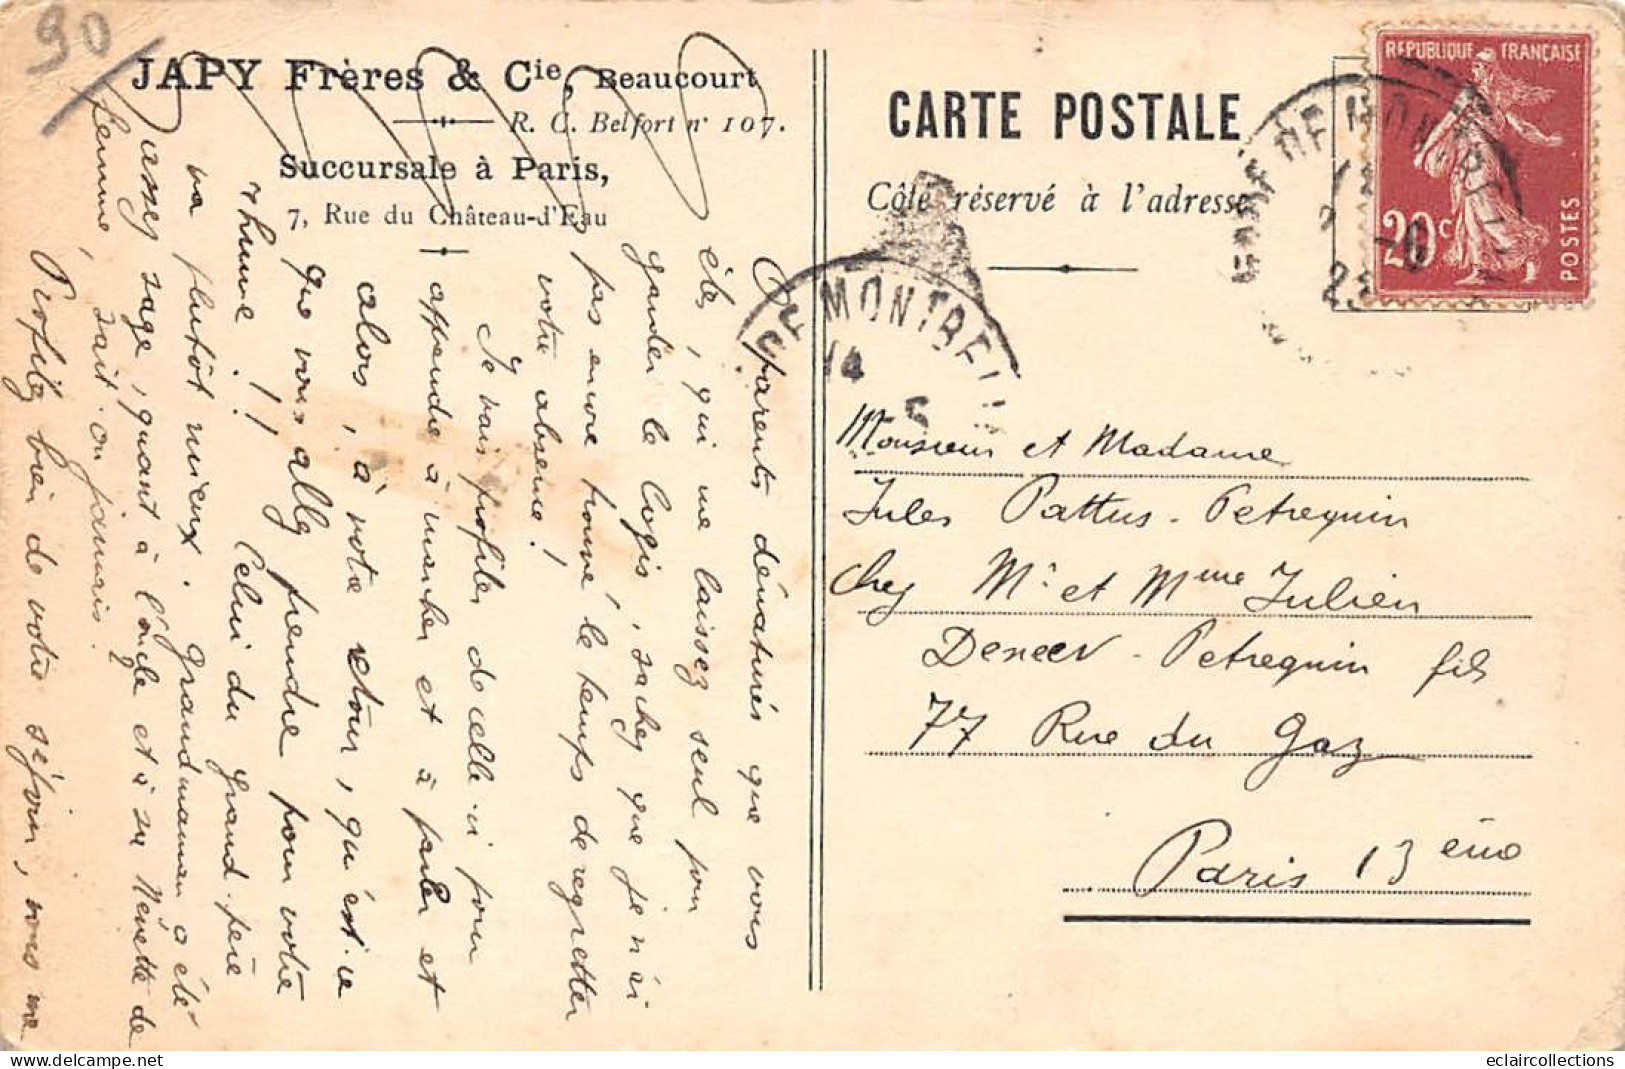 90
JAPY Frères & Cie, Beaucourt
R. C. Belfort n° 107.
Succursale à Paris,
7, Rue du Château-d'Eau
CARTE POSTALE
Côté réservé à l'adresse
REPUBLIQUE FRANÇAISE
20c
POSTES
DE MONTREUIL
DE MONTREUI
14
5
Monsieur et Madame
Jules Pattus - Petrequin
chez Mr et Mme Julien
Petrequin fils
77 Rue du Gaz
Paris 13 ème
O parents dénaturés que vous
êtes, qui me laissez seul pour
garder le logis, sachez que je n'ai
pas encore trouvé le temps de regretter
votre absence!
Je vais profiter de celle-ci pour
apprendre à marcher et à parler et
alors, à votre retour, qu'est-ce
que vous allez prendre pour votre
rhume!! Celui du grand-père
va plutôt mieux. Grand'maman a été
assez sage, quant à l'oncle et à sa Nénette de
femme, sait-on jamais.
Profitez bien de votre séjour, vous me
eclaircollections